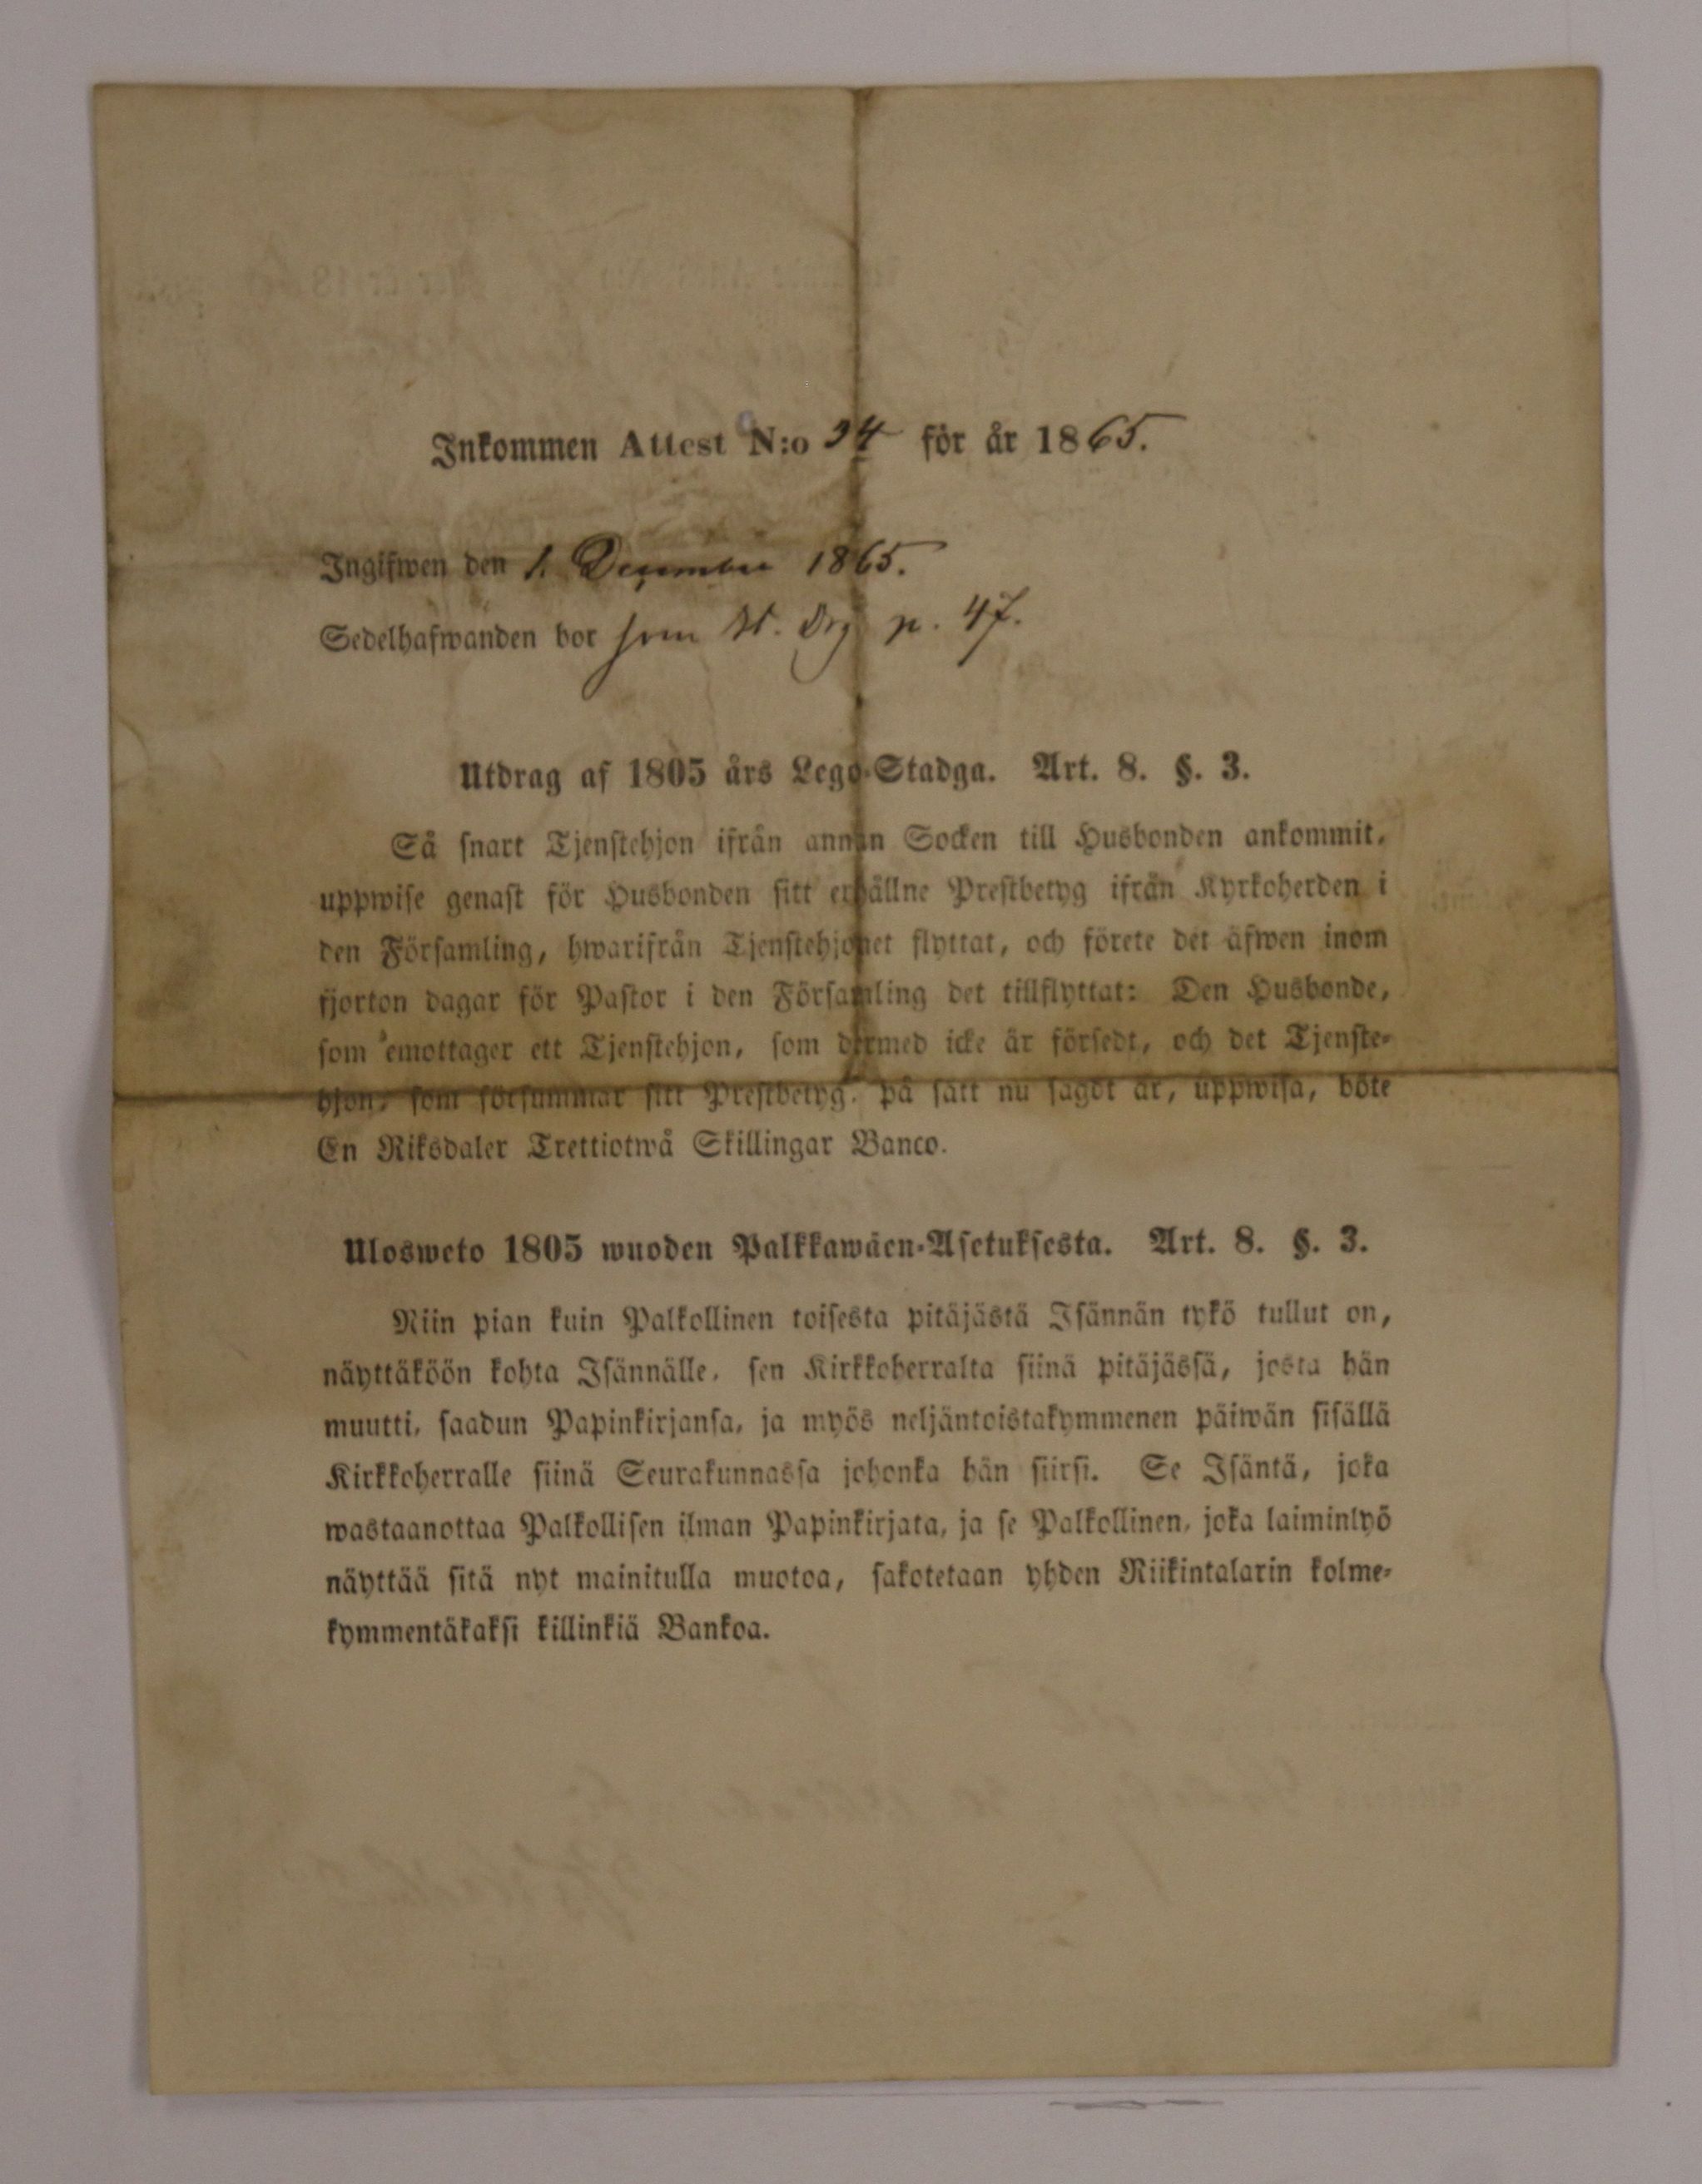 Inkommen Attest N:o 34 för år 1865.
Ingifwen den 1. December 1865.
Sedelhafwanden bor p. 47.
Utdrag af 1805 års Lego-Stadga. Art. 8. §. 3.
Så snart Tjenstehjon ifrån annan Socken till Husbonden ankommit,
uppwise genast för Husbonden sitt erhållne Prestbetyg ifrån Kyrkoherden i
den Församling, hwarifrån Tjenstehjonet flyttat, och förete det äfwen inom
fjorton dagar för Pastor i den Församling det tillflyttat: Den Husbonde,
som emottager ett Tjenstehjon, som dermed icke är försedt, och det Tjenste-
hjon, som försummar sitt Prestbetyg, på sätt nu sagdt är, uppwisa, böte
En Riksdaler Trettiotwå Skillingar Banco.
Ulosweto 1805 wuoden Palkkawäen-Asetuksesta. Art. 8. §. 3.
Niin pian kuin Palkollinen toisesta pitäjästä Isännän tykö tullut on,
näyttäköön kohta Isännälle, sen Kirkkoherralta siinä pitäjässä, josta hän
muutti, saadun Papinkirjansa, ja myös neljäntoistakymmenen päiwän sisällä
Kirkkoherralle siinä Seurakunnassa johonka hän siirsi. Se Isäntä, joka
wastaanottaa Palkollisen ilman Papinkirjata, ja se Palkollinen, joka laiminlyö
näyttää sitä nyt mainitulla muotoa, sakotetaan yhden Riikintalarin kolme-
kymmentäkaksi killinkiä Bankoa.